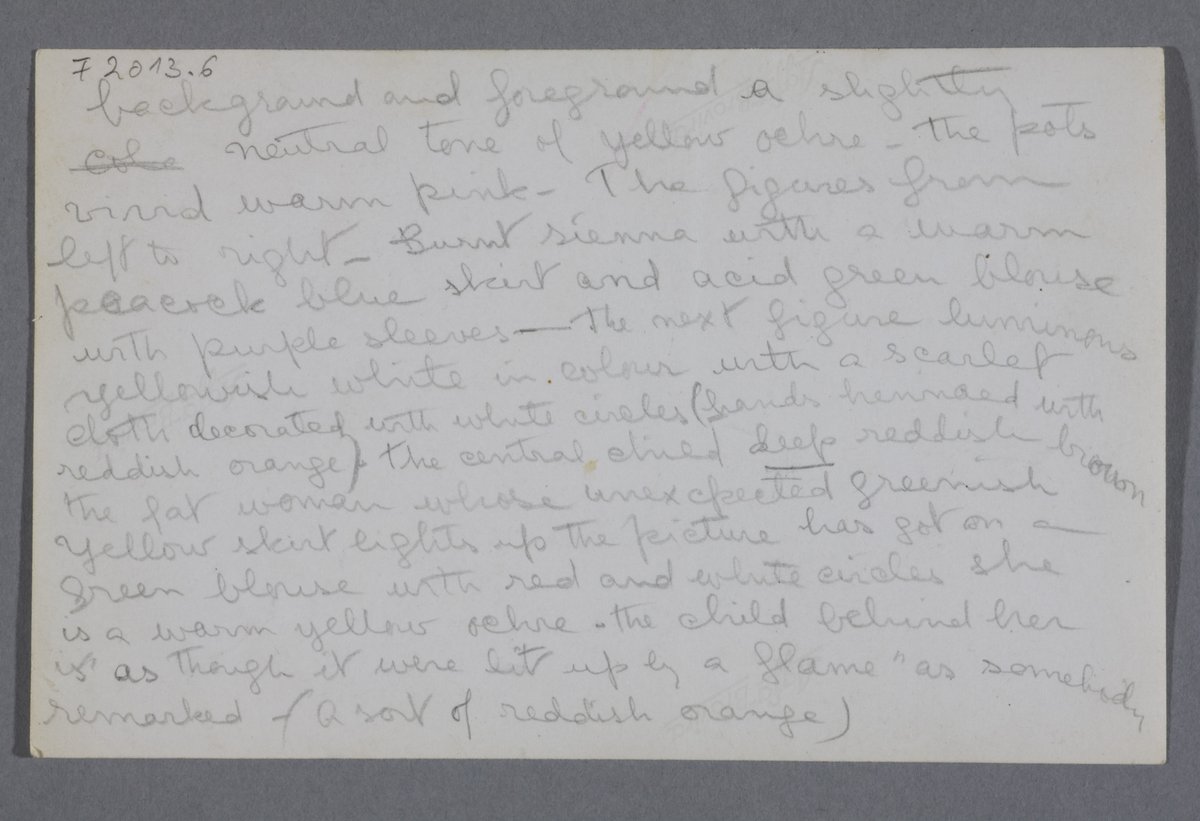 F 2013.6
background and foreground a slightly
neutral tone of yellow ochre - the pots
vivid warm pink - The figures from
left to right - Burnt sienna with a warm
peacock blue skirt and acid green blouse
with purple sleeves — the next figure luminous
yellowish white in colour with a scarlet
cloth decorated with white circles (hands hennaed with
reddish orange) the central child deep reddish brown
the fat woman whose unexpected greenish
yellow skirt lights up the picture has got on a
green blouse with red and white circles she
is a warm yellow ochre - the child behind her
is "as though it were lit up by a flame" as somebody
remarked - (a sort of reddish orange)